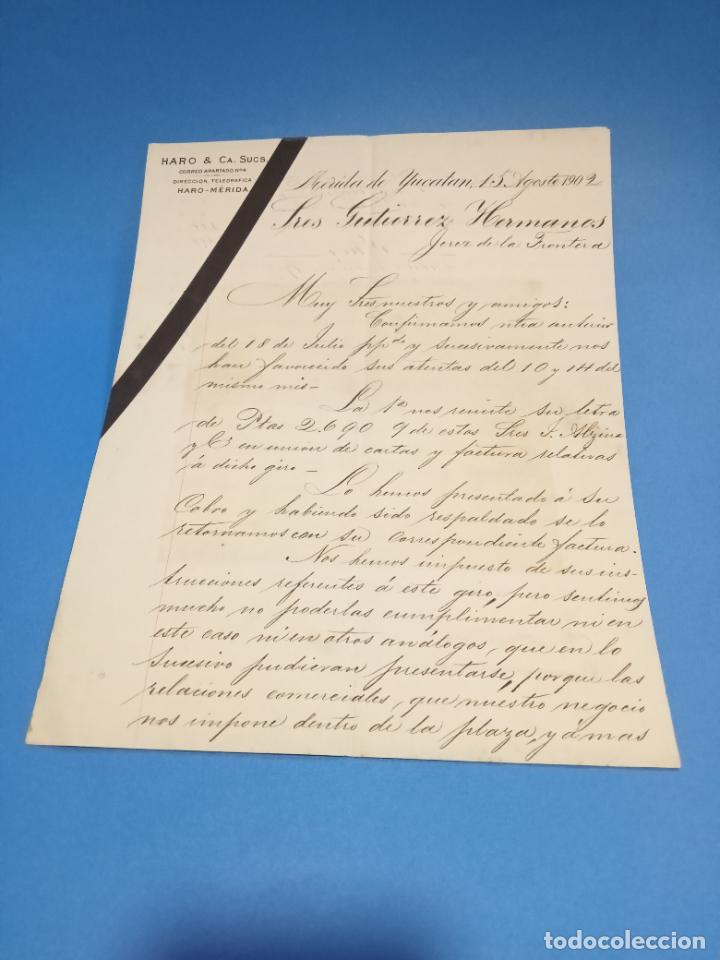 HARO & CA. SUCS.
CORREO APARTADO Nº 4
DIRECCION TELEGRAFICA
HARO-MÉRIDA
Mérida de Yucatan, 15 Agosto 1902
Sres Gutierrez Hermanos
Jerez de la Frontera
Muy Sres nuestros y amigos:
Confirmamos ntra anterior
del 18 de Julio ppdo y sucesivamente nos
han favorecido sus atentas del 10 y 14 del
mismo mes-
La 1ª nos remite su letra
de Ptas 2.690 9 de estos Sres J.
y Cª en union de cartas y factura relativas
á dicho giro-
Lo hemos presentado á su
Cobro y habiendo sido respaldado se lo
retornamos con su correspondiente factura.
Nos hemos impuesto de sus ins-
trucciones referentes á este giro, pero sentimos
mucho no poderlas cumplimentar ni en
este caso ni en otros análogos, que en lo
sucesivo pudieran presentarse, porque las
relaciones comerciales, que nuestro negocio
nos impone dentro de la plaza, y á mas
todocoleccion